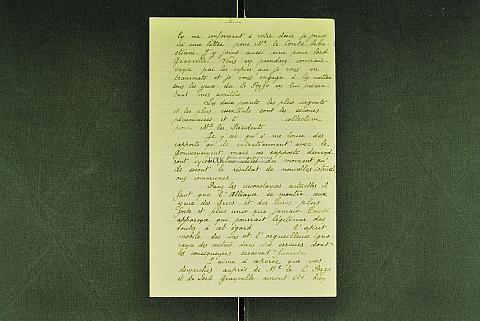 En me conformant à votre désir je joins
ici une lettre pour Mr. le Comte Seba-
stiani. J'y joins aussi une pour lord
Granville. Vous en prendrez connais-
sance par les copies que je vous en
transmets et je vous engage à les mettre
sous les yeux du C. Pozzo en lui présen-
tant mes amitiés.
Les deux points les plus urgents
et les plus essentiels sont les secours
pécuniaires et l' collective
pour Mrs les Résidents.
Je n'ai qu'à me louer des
rapports qu'ils entretiennent avec le
Gouvernement mais ces rapports devien-
dront encore plus utiles du moment qu'
ils seront le résultat de nouvelles instruct
ions communes.
Dans les circonstances actuelles il
faut que l'Alliance se montre aux
yeux des Grecs et des Turcs plus
forte et plus unie que jamais. Toute
apparence qui pourrait légitimer des
doutes à cet égard l'esprit
mobile des uns et l'orgueilleuse igno-
rance des autres dans des erreurs dont
les conséquences seraient funestes.
J'aime à espérer que vos
démarches auprès de Mr. le C. Pozzo
et de Lord Granville auront été bien